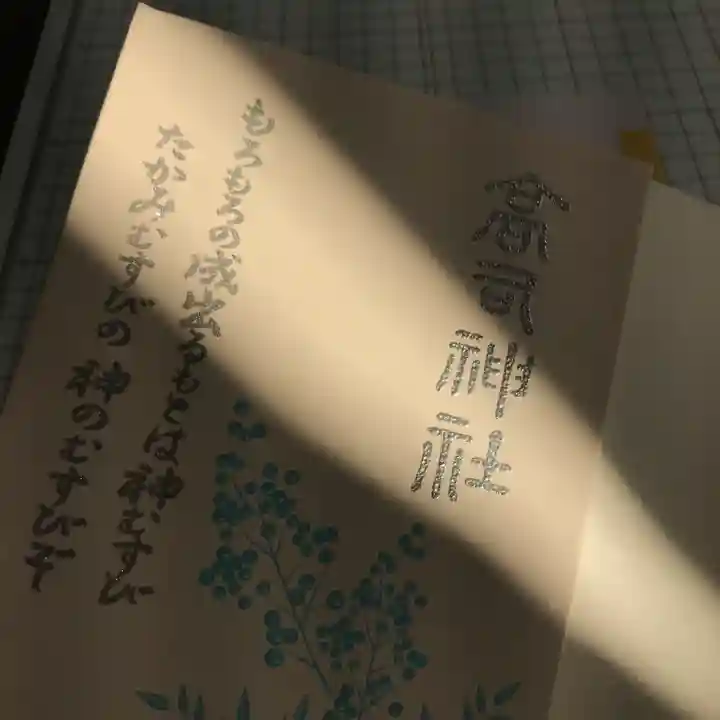 神社
もろもろの成出るもとは神むすび
たかみむすびの神のむすびぞ